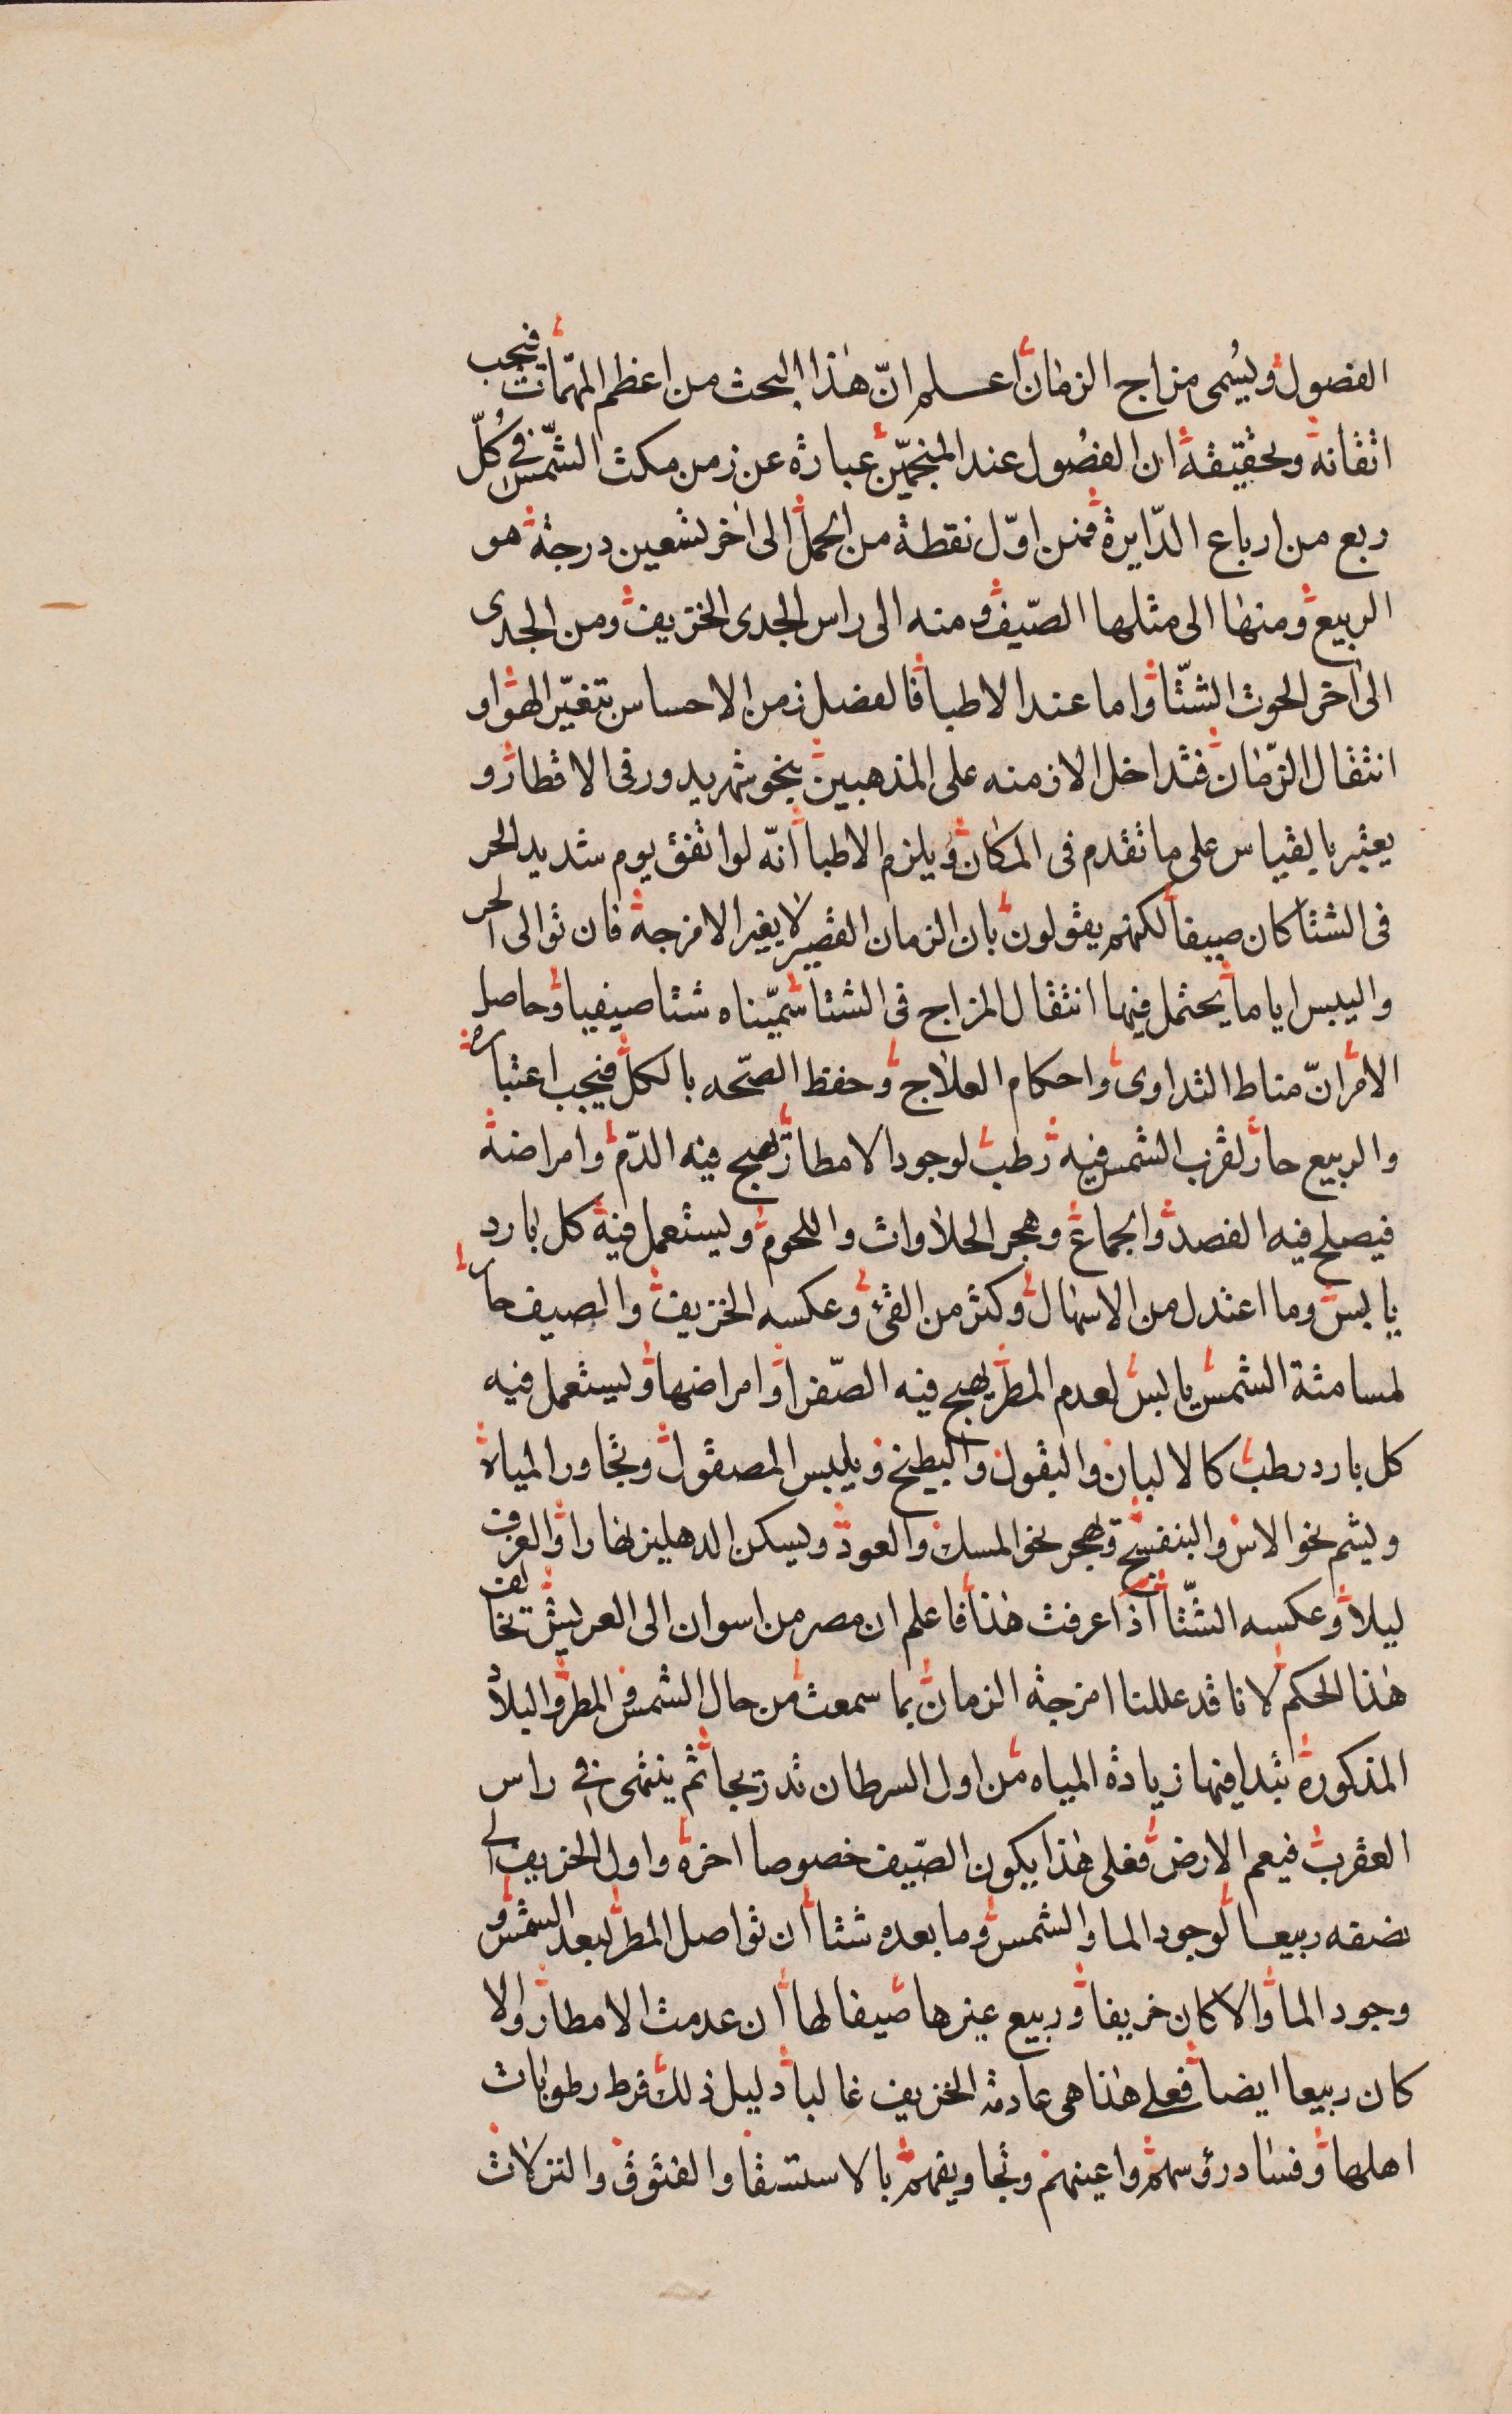 الفصول ويُسمى مزاج الزمان اعلم انّ هذا البحث من اعظم المهمّات فيجب
اتقانه وتحقيقه ان الفصُول عند المنجمّين عبارة عن زمن مكث الشّمس في كُلّ
ربع من ارباع الدّايرة فمن اوّل نقطة من الحمل الى اخر تسعين درجة هو
الربيع ومنها الى مثلها الصّيف ومنه الى راس الجدى الخريف ومن الجدى
الى اخر الحوت الشتّا واما عند الاطبا فالفصل زمن الاحساس بتغيّر الهوا و
انتقال الزّمان فتداخل الازمنه على المذهبين بنحو شهر يدور فى الاقطار و
يعتبر بالقياس على ما تقدم فى المكان ويلزم الاطبا انّه لو اتفق يوم شديد الحر
فى الشتا كان صيفا لكنهم يقولون بان الزمان القصير لا يغير الامزجة فان توالى الحر
واليبس اياما يحتمل فيها انتقال المزاج فى الشتا سمّيناه شتا صيفيا وحاصل
الامر انّ مناط التداوى واحكام العلاج وحفظ الصّحه بالكل فيجب اعتباره
والربيع حار لقرب الشمس فيه رطب لوجود الامطار تهيج فيه الدّم وامراضه
فيصلح فيه الفصد والجماع وهجر الحلاوات واللحوم ويستعمل فيه كل بارد
يابس وما اعتدل من الاسهال وكثر من القئ وعكسه الخريف والصيف حار
لمسامتة الشمس يابس لعدم المطر يهيج فيه الصّفرا وامراضها ويستعمل فيه
كل بارد رطب كالالبان والبقول والبطيخ ويلبس المصقول وتجاور المياه
ويشم نحو الاس والبنفسج ويهجر نحو المسك والعود ويسكن الدهليز نهارا والغرف
ليلا وعكسه الشّتا اذا عرفت هذا فاعلم ان مصر من اسوان الى العريش تخالف
هذا الحكم لانا قد عللنا امزجة الزمان بما سمعت من حال الشمس والمطر والبلاد
المذكورة تبدا فيها زيادة المياه من اول السرطان تدريجا ثم ينتهى في راس
العقرب فيعم الارض فعلى هذا يكون الصّيف خصوصا اخره واول الخريف الى
نصفه ربيعا لوجود الما والشمس وما بعده شتا ان تواصل المطر لبعد الشمس و
وجود الما والا كان خريفا وربيع غيرها صيفا لها ان عدمت الامطار والا
كان ربيعا ايضا فعلى هذا هى عادمة الخريف غالبا دليل ذلك فرط رطوبات
اهلها وفساد رؤسهم واعينهم وتجاويفهم بالاستسقا والفتوق والنزلات